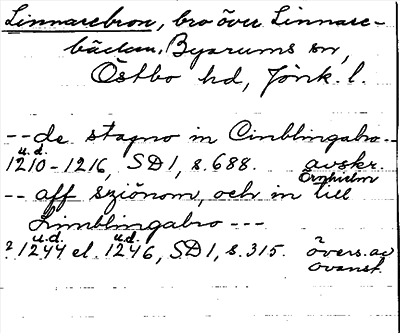 Linnarebron, bro över Linnare-
bäcken, Byarums sn,
Östbo hd, Jönk. l.
-- de stagno in Cinblingabro --
u.d.
1210-1216, SD 1, s. 688. avskr.
Örnhielm
-- aff sziönom, och in till
Limblingabro ---
u.d. u.d.
? 1244 el. 1246, SD 1, s. 315. övers. av
ovanst.